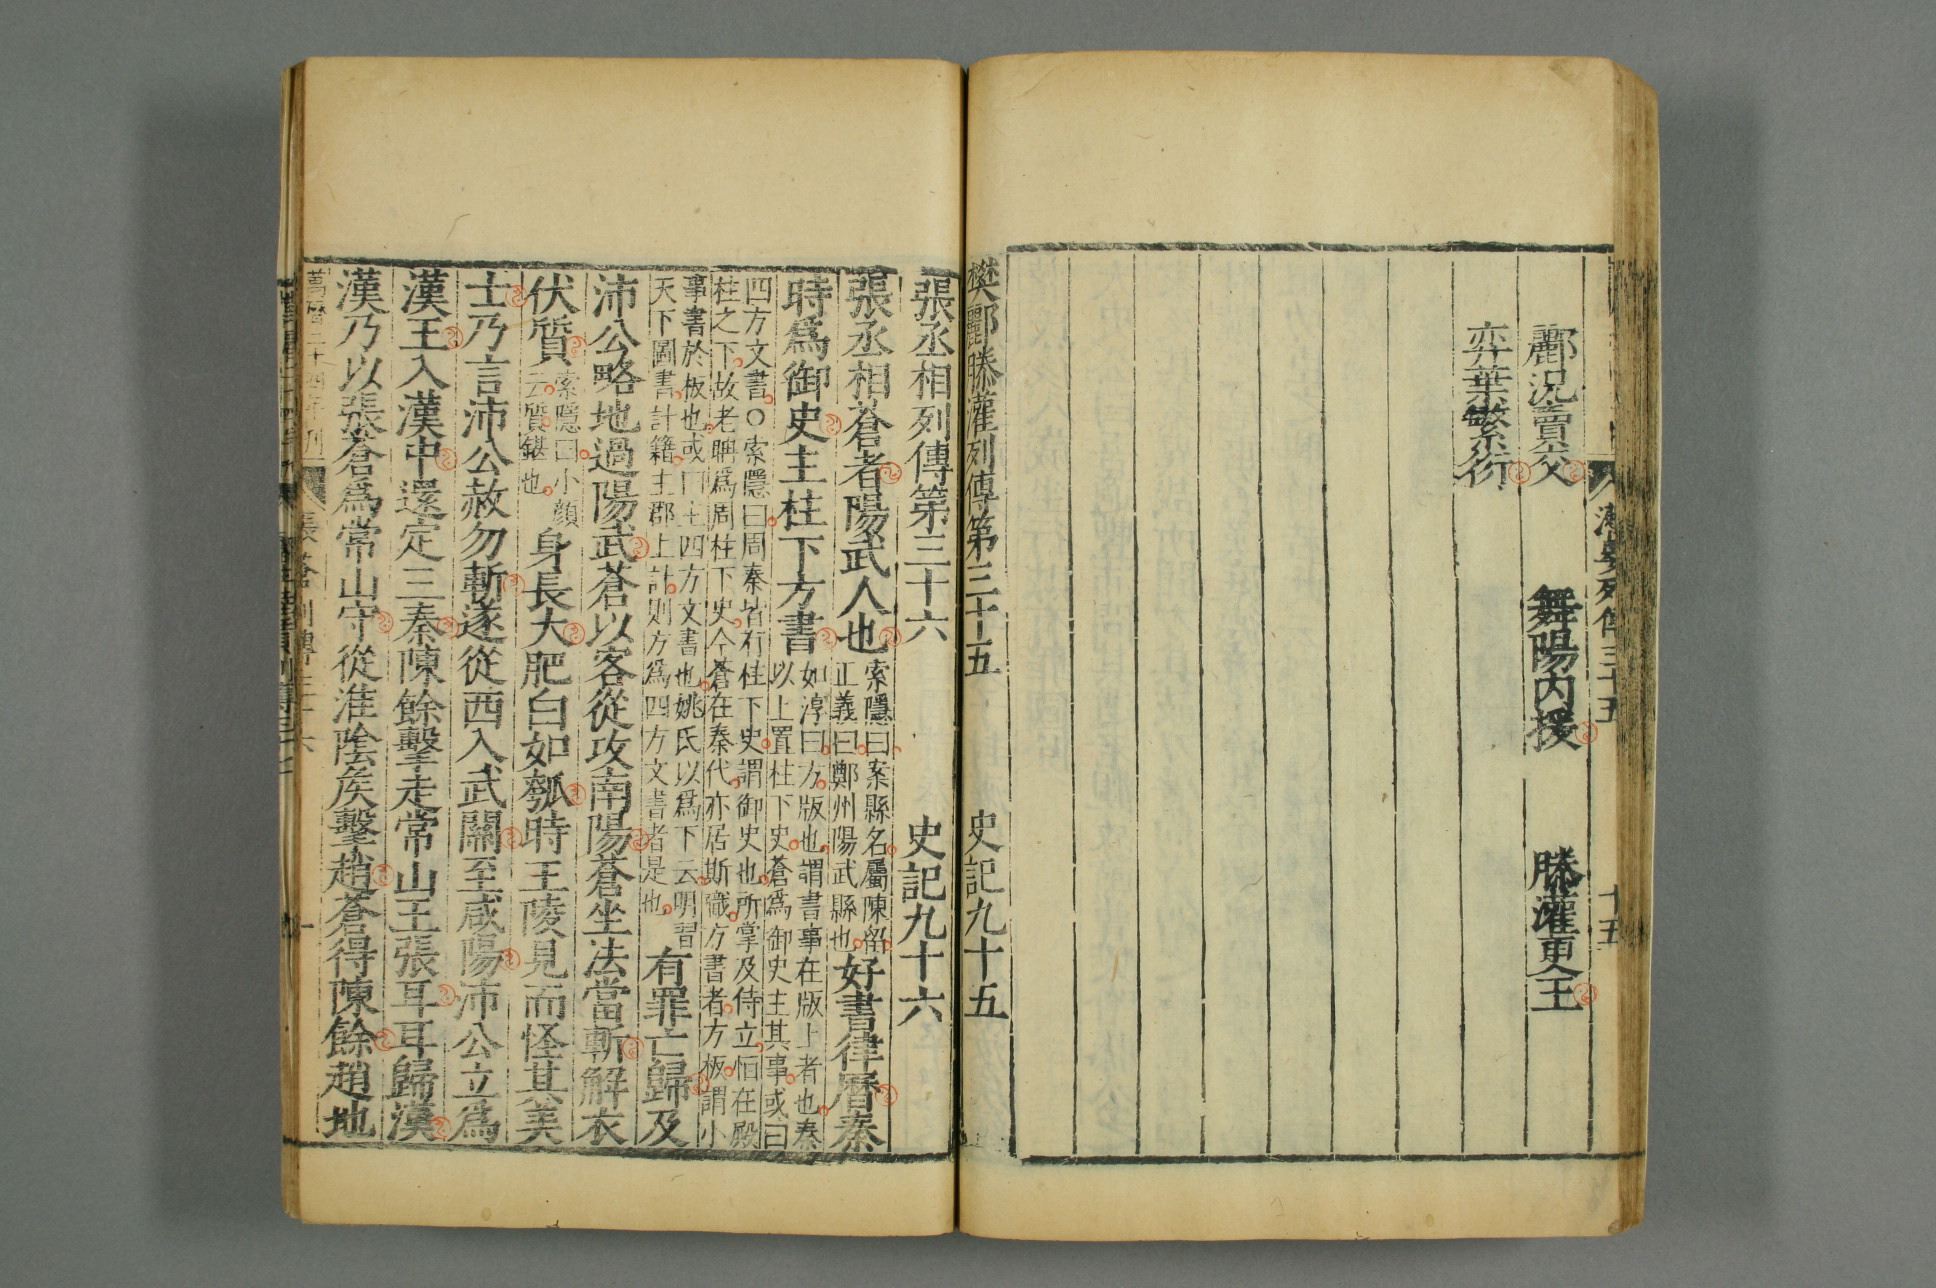 酈況賣交　舞陽內援　滕灌更王
弈葉繁衍
樊酈滕灌列傳第三十五　史記九十五
張丞相列傳第三十六　史記九十六
張丞相蒼者陽武人也索隱曰案縣名屬陳留
正義曰鄭州陽武縣也好書律曆秦
時爲御史主柱下方書如淳曰方版也謂書事在版上者也秦
以上置柱下史蒼爲御史主其事或曰
四方文書○索隱曰周秦皆有柱下史謂御史也所掌及侍立恒在殿
柱之下故老聃爲周柱下史今蒼在秦代亦居斯職方書者方板謂小
事書於板也或曰主四方文書也姚氏以爲下云明習
天下圖書計籍主郡上計則方爲四方文書者是也有罪亡歸及
沛公略地過陽武蒼以客從攻南陽蒼坐法當斬解衣
伏質索隱曰小顔
云質鍖也身長大肥白如瓠時王陵見而怪其美
士乃言沛公赦勿斬遂從西入武關至咸陽沛公立爲
漢王入漢中還定三秦陳餘擊走常山王張耳耳歸漢
漢乃以張蒼爲常山守從淮陰侯擊趙蒼得陳餘趙地
萬曆二十四年刊　張蒼列傳三十六　一